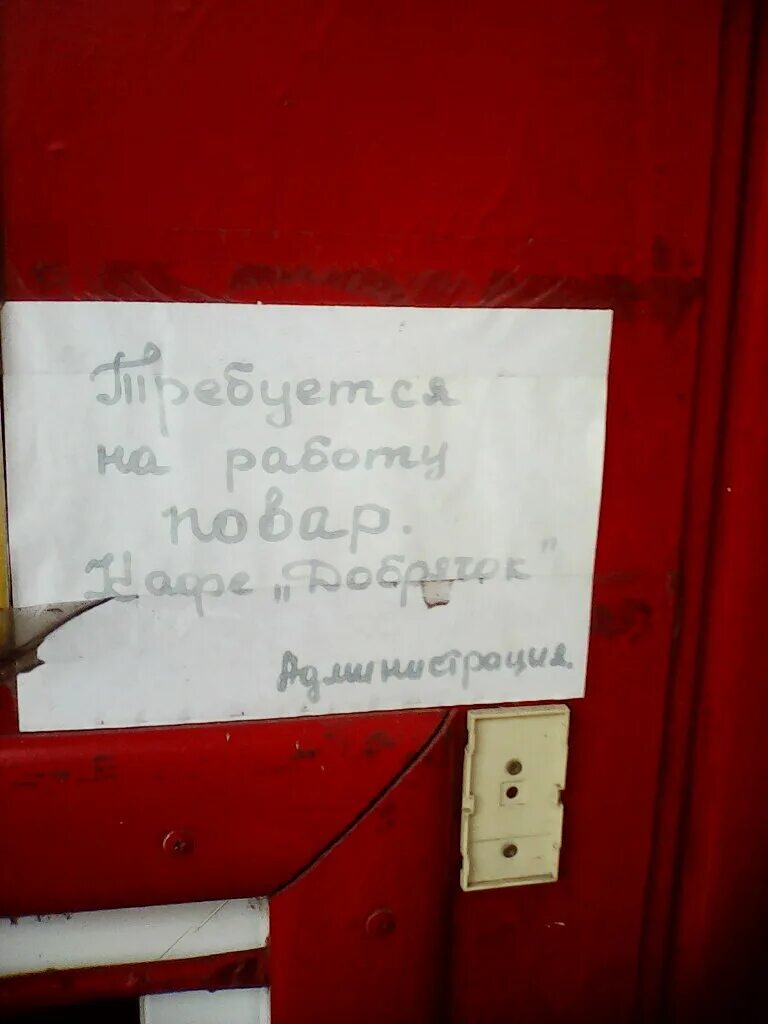 Требуется
на работу
повар.
Кафе „Добрячок"
Администрация.